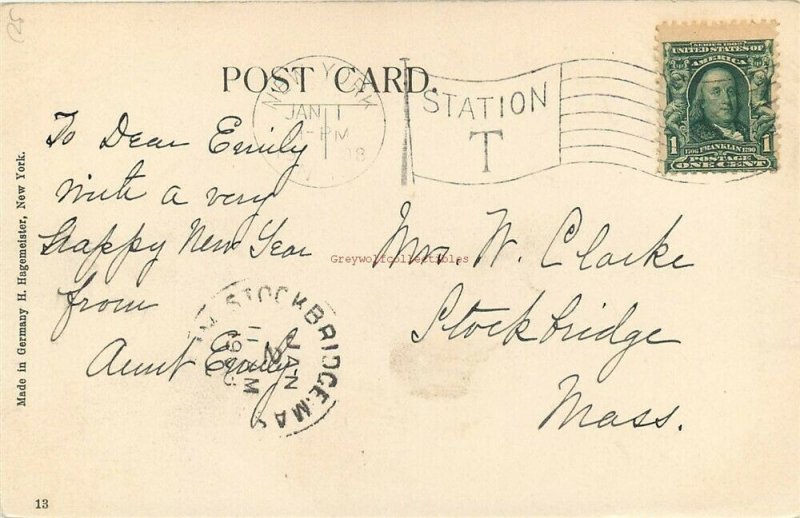 25
POST CARD.
NEW YORK
JAN 1
-PM
STATION
T
SERIES 1902
UNITED STATES OF
AMERICA
1706 FRANKLIN 1790
POSTAGE
1 ONE CENT 1
To Dear Emily
with a very
Happy New Year
from
Aunt Emily
Mrs. W. Clarke
Stockbridge
Mass.
Greywolfcollectibles
STOCKBRIDGE. MAS
JAN
2
11 AM
1908
Made in Germany H. Hagemeister, New York.
13